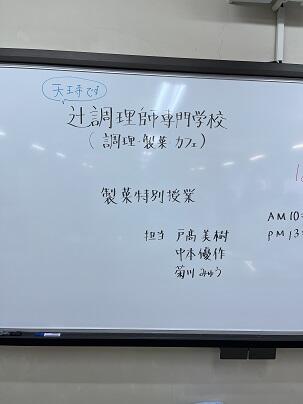 天王寺です
辻調理師専門学校
(調理・製菓・カフェ)
製菓特別授業
担当 戸高 美樹
中本 優作
菊川 みゅう
AM 10:
PM 13: